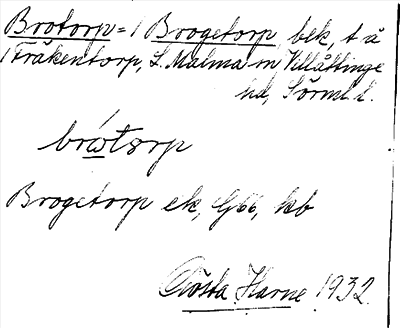 Brotorp = / Brogetorp, bek, t å
/ Fräkentorp, L. Malma sn Villåttinge
hd, Sörml. l.
brótorp
Brogetorp ek, G66, kb
Gösta Harne 1932.